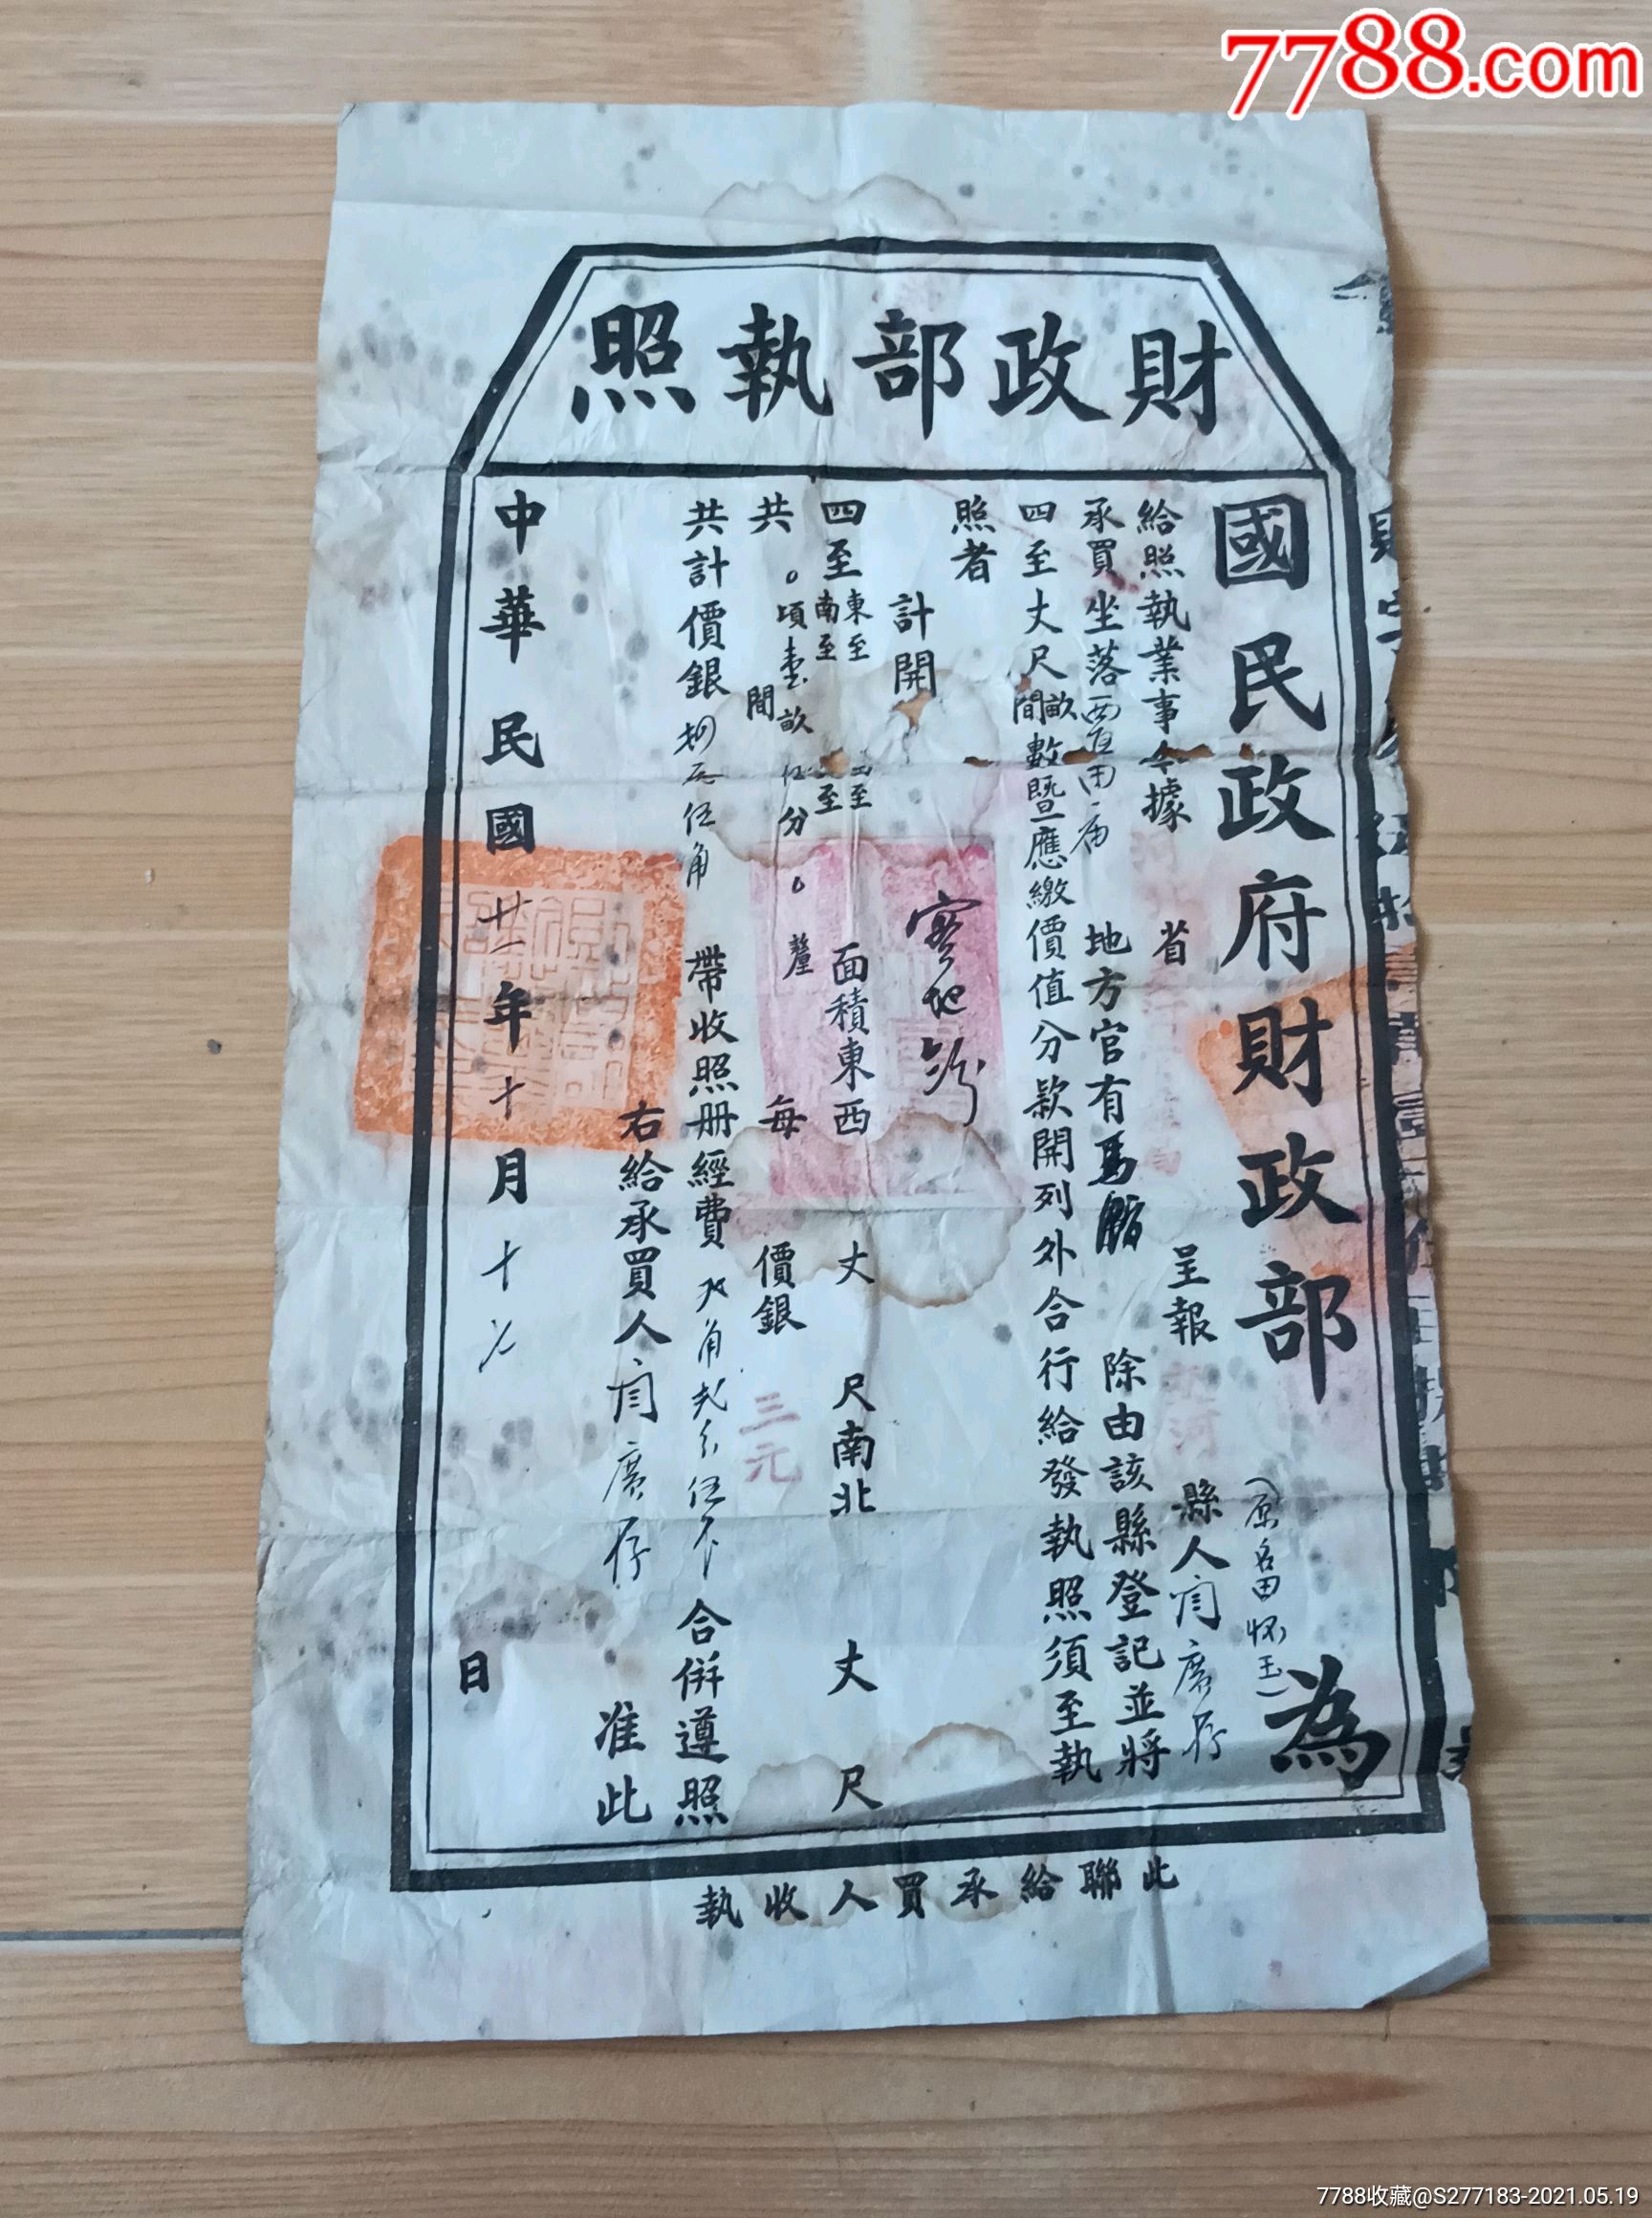 7788.com
財政部執照
國民政府財政部 為
(原名田怀玉)
給照執業事今據 省 呈報 縣人闫廣存
承買坐落 地方官有 除由該縣登記並將
四至丈尺畝間數暨應繳價值分款開列外合行給發執照須至執
照者
計開
四至東至 南至 至 至 面積東西 丈 尺南北 丈 尺
共 。頃壹畝伍分。釐 間 每 價銀 三元
共計價銀 伍角 帶收照册經費 角 伍 合併遵照
右給承買人闫廣存 准此
中華民國廿一年十月十 日
此聯給承買人收執
7788收藏@S277183-2021.05.19